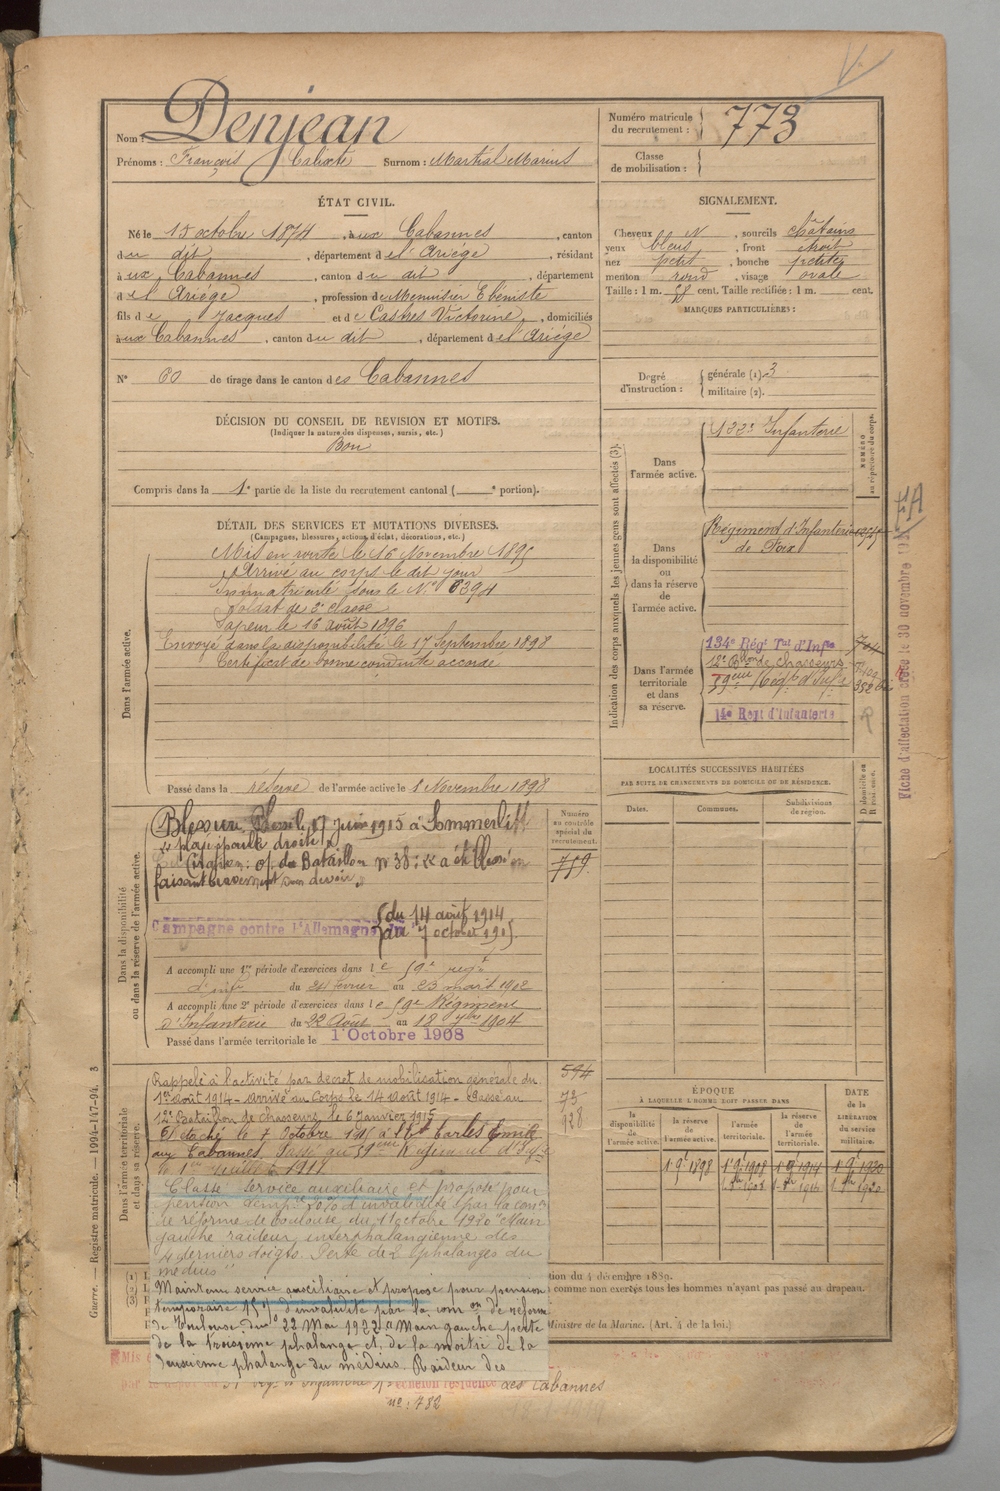 Nom : Denjean
Prénoms : François Calixte Surnom : Martial Marius
Numéro matricule du recrutement : 773
Classe de mobilisation :
ÉTAT CIVIL.
Né le 15 octobre 1874, à ux Cabannes, canton
du dit, département de l'Ariège, résidant
à ux Cabannes, canton du dit, département
de l'Ariège, profession de Menuisier Ebéniste
fils de Jacques et de Castres Victorine, domiciliés
à ux Cabannes, canton du dit, département de l'Ariège
N° 60 de tirage dans le canton des Cabannes
SIGNALEMENT.
Cheveux N, sourcils châtains
yeux bleus, front étroit
nez petit, bouche petite
menton rond, visage ovale
Taille : 1 m. 58 cent. Taille rectifiée : 1 m. cent.
MARQUES PARTICULIÈRES :
Degré d'instruction : générale (1). 3
militaire (2).
DÉCISION DU CONSEIL DE REVISION ET MOTIFS.
(Indiquer la nature des dispenses, sursis, etc.)
Bon
Compris dans la 1e partie de la liste du recrutement cantonal ( e portion).
DÉTAIL DES SERVICES ET MUTATIONS DIVERSES.
(Campagnes, blessures, actions d'éclat, décorations, etc.)
Dans l'armée active.
Mis en route le 16 Novembre 1895
Arrivé au corps le dit jour
Immatriculé sous le N°
Soldat de 2e classe
Sapeur le 16 août 1896
Envoyé dans la disponibilité le 17 Septembre 1898
Certificat de bonne conduite accordé
Passé dans la réserve de l'armée active le 1 Novembre 1898
Indication des corps auxquels les jeunes gens sont affectés (3).
NUMÉRO au répertoire du corps.
Dans l'armée active.
Infanterie
Dans la disponibilité ou dans la réserve de l'armée active.
Régiment d'Infanterie
de Foix
Dans l'armée territoriale et dans sa réserve.
134e Régt Tal d'Infie
12e Bllon de chasseurs
59eme Regt d'Infie
14e Regt d'Infanterie
Fiche d'affectation créée le 30 novembre
FA
Dans la disponibilité ou dans la réserve de l'armée active.
Numéro au contrôle spécial du recrutement.
719
Blessure. Blessé le 17 juin 1915 à Sommerlitt
"plaie épaule droite"
Citation : o/ du Bataillon n° 38 : "a été blessé en
faisant bravement son devoir"
Campagne contre l'Allemagne du
du 14 août 1914
au 7 octobre 1915
A accompli une 1re période d'exercices dans le 59e regt
d'inf du 24 février au 23 mart 1902
A accompli une 2e période d'exercices dans le 59e Régiment
d'Infanterie du 22 Août au 18 7bre 1904
Passé dans l'armée territoriale le 1 Octobre 1908
LOCALITÉS SUCCESSIVES HABITÉES
PAR SUITE DE CHANGEMENTS DE DOMICILE OU DE RÉSIDENCE.
Dates. Communes. Subdivisions de région. D domicile ou R résidence.
Dans l'armée territoriale et dans sa réserve.
594
73
928
Rappelé à l'activité par décret de mobilisation générale du
1er août 1914 - Arrivé au Corps le 14 août 1914 - Passé au
12e Bataillon de chasseurs le 6 janvier 1915
Détaché le 7 Octobre 1915 à
aux Cabannes. Passé au 59eme Régiment d'Infie
le 1er juillet 1917
Classé Service auxiliaire et proposé pour
pension temp. 20% d'invalidité par la comon
de réforme de Toulouse du 1 octobre 1920 "Main
gauche raideur interphalangienne des
4 derniers doigts. Perte de 2 phalanges du
médius"
Maintenu service auxiliaire et proposé pour pension
temporaire 15% d'invalidité par la comon de réforme
de Toulouse du 22 Mai 1922 "Main gauche perte
de la troisième phalange et de la moitié de la
deuxième phalange du médius. Raideur des
ÉPOQUE
À LAQUELLE L'HOMME DOIT PASSER DANS
la disponibilité de l'armée active. la réserve de l'armée active. l'armée territoriale. la réserve de l'armée territoriale. DATE de la LIBÉRATION du service militaire.
1 9e 1898 1 9e 1908 1 9e 1914 1 9e 1920
ion du 4 décembre 1889.
comme non exercés tous les hommes n'ayant pas passé au drapeau.
Ministre de la Marine. (Art. 4 de la loi.)
Guerre. — Registre matricule. — 1994-147-94. 3
échelon résidence des Cabannes
n° : 782